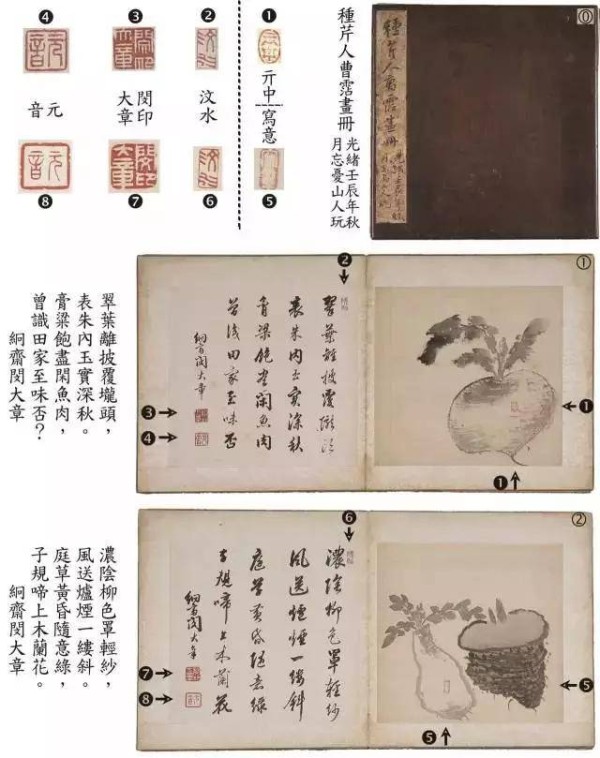 ⓪
種芹人曹霑畫冊
光緒壬辰年秋
月忘憂山人玩
種芹人曹霑畫冊
光緒壬辰年秋
月忘憂山人玩
❶
亓中
寫意
❺
❷
汶水
❻
❸
閔印
大章
❼
❹
元音
❽
①
❶
❶
❷
翠葉離披覆壠頭
表朱內玉實深秋
膏粱飽盡閑魚肉
曾識田家至味否
絅齋閔大章
❸
❹
翠葉離披覆壠頭，
表朱內玉實深秋。
膏粱飽盡閑魚肉，
曾識田家至味否？
絅齋閔大章
②
❺
❺
❻
濃陰柳色罩輕紗
風送爐煙一縷斜
庭草黃昏隨意綠
子規啼上木蘭花
絅齋閔大章
❼
❽
濃陰柳色罩輕紗，
風送爐煙一縷斜。
庭草黃昏隨意綠，
子規啼上木蘭花。
絅齋閔大章